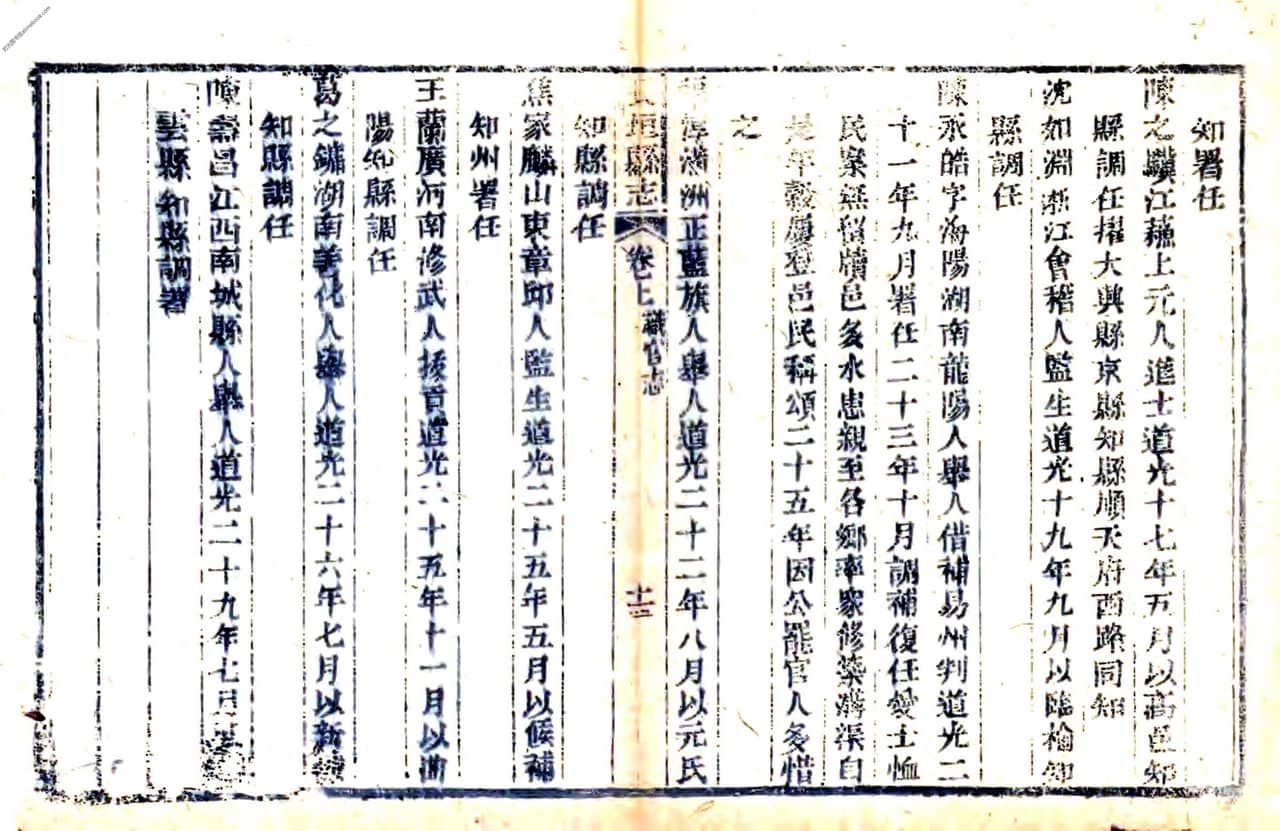 知署任
陳之驥江蘇上元人進士道光十七年五月以高邑知
縣調任擢大興縣京縣知縣順天府西路同知
沈如淵浙江會稽人監生道光十九年九月以臨榆知
縣調任
陳永皓字海陽湖南龍陽人舉人借補易州判道光二
十一年九月署任二十三年十月調補復任愛士恤
民案無留牘邑多水患親至各鄉率眾修築溝渠自
是年穀屢登邑民稱頌二十五年因公罷官人多惜
之
淳滿洲正藍旗人舉人道光二十二年八月以元氏
垣縣志 卷七 職官志 十三
知縣調任
焦家麟山東章邱人監生道光二十五年五月以候補
知州署任
王蘭廣河南修武人拔貢道光二十五年十一月以曲
陽知縣調任
葛之鏞湖南善化人舉人道光二十六年七月以新
知縣調任
陳壽昌江西南城縣人舉人道光二十九年七月
雲縣知縣調署